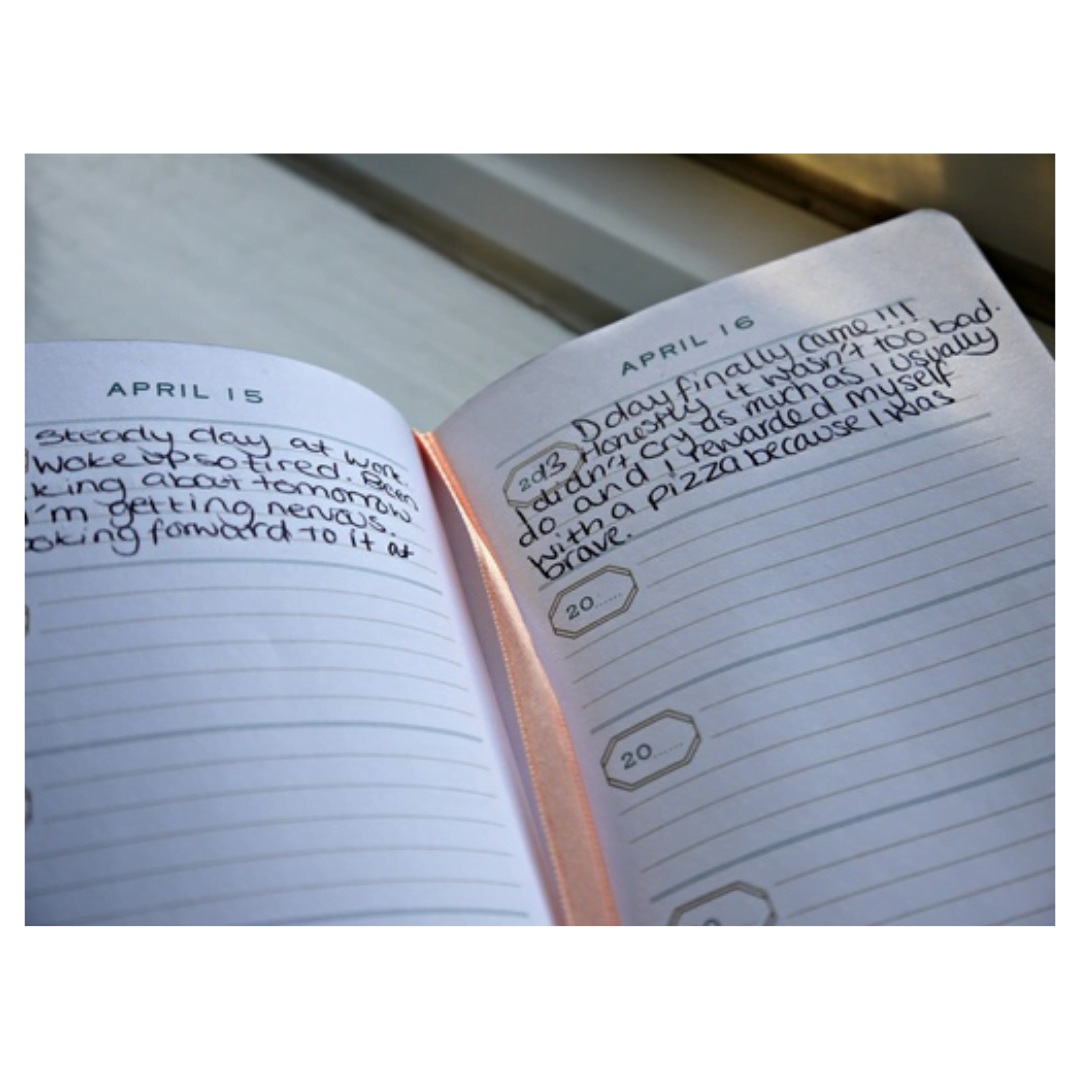 APRIL 15
Steady day at work.
Woke up so tired. Been
king about tomorrow
I'm getting nervous.
ooking forward to it at
APRIL 16
D day finally came!!!
Honestly it wasn't too bad.
2023
I didn't cry as much as i usually
do and I rewarded myself
with a pizza because I was
brave.
20......
20......